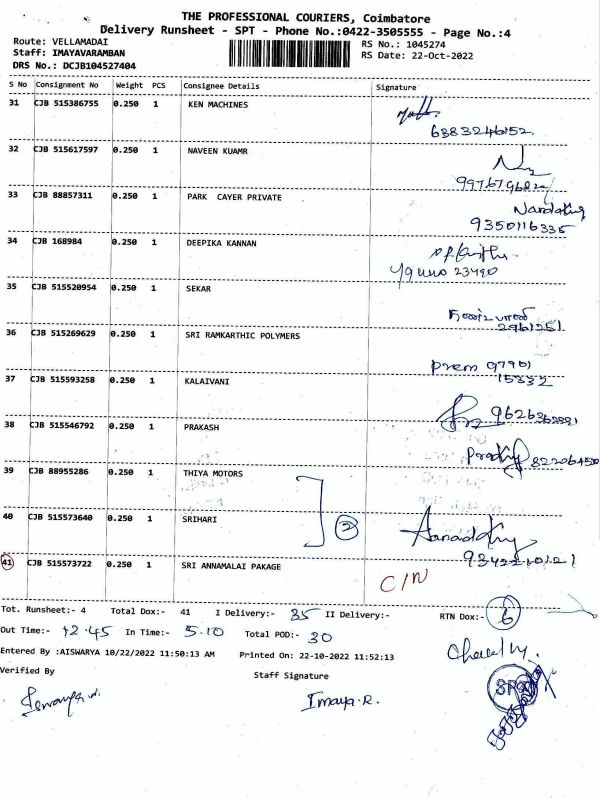 THE PROFESSIONAL COURIERS, Coimbatore
Delivery Runsheet - SPT - Phone No.:0422-3505555 - Page No.:4
Route: VELLAMADAI
RS No.: 1045274
Staff: IMAYAVARAMBAN
RS Date: 22-Oct-2022
DRS No.: DCJB104527404
S No Consignment No Weight PCS Consignee Details Signature
31 CJB 515386755 0.250 1 KEN MACHINES
6383246152
32 CJB 515617597 0.250 1 NAVEEN KUAMR
33 CJB 88857311 0.250 1 PARK CAYER PRIVATE
9350116335
34 CJB 168984 0.250 1 DEEPIKA KANNAN
35 CJB 515520954 0.250 1 SEKAR
2961251
36 CJB 515269629 0.250 1 SRI RAMKARTHIC POLYMERS
Prem 97901
15332
37 CJB 515593258 0.250 1 KALAIVANI
38 CJB 515546792 0.250 1 PRAKASH
39 CJB 88955286 0.250 1 THIYA MOTORS
40 CJB 515573640 0.250 1 SRIHARI
2
41 CJB 515573722 0.250 1 SRI ANNAMALAI PAKAGE
C/N
Tot. Runsheet:- 4 Total Dox:- 41 I Delivery:- 35 II Delivery:- RTN Dox:- 6
Out Time:- 12.45 In Time:- 5.10 Total POD:- 30
Entered By :AISWARYA 10/22/2022 11:50:13 AM Printed On: 22-10-2022 11:52:13
Verified By Staff Signature
Imaya.R.
SPT